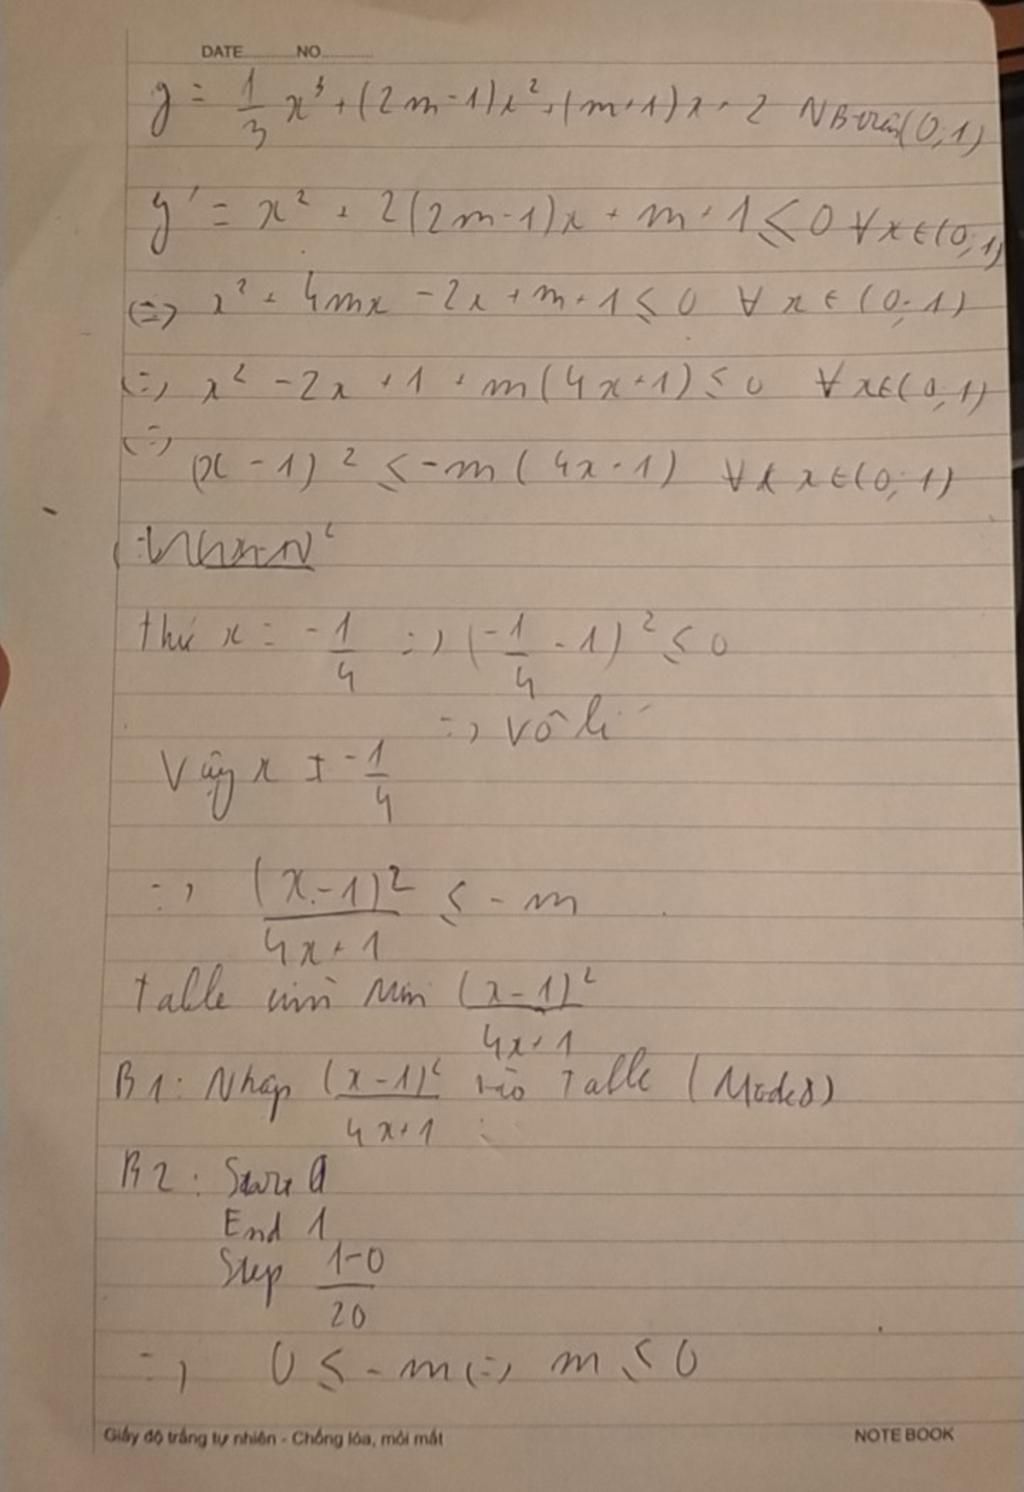 DATE NO
y = 1/3 x³ + (2m-1)x² + (m+1)x - 2 NB trên (0;1)
y' = x² + 2(2m-1)x + m+1 ≤ 0 ∀x∈(0;1)
(=) x² + 4mx - 2x + m+1 ≤ 0 ∀x∈(0;1)
(=) x² - 2x + 1 + m(4x+1) ≤ 0 ∀x∈(0;1)
(=) (x-1)² ≤ -m(4x+1) ∀ x∈(0;1)
thử x = -1/4 => (-1/4 - 1)² ≤ 0
=> vô lí
Vậy x ≠ -1/4
=> (x-1)²/(4x+1) ≤ -m
Table tìm Min (x-1)²/(4x+1)
B1: Nhập (x-1)²/(4x+1) vào Table (Mode8)
B2: Start 0
End 1
Step (1-0)/20
=> 0 ≤ -m (=) m ≤ 0
Giấy độ trắng tự nhiên - Chống lóa, mỏi mắt NOTE BOOK